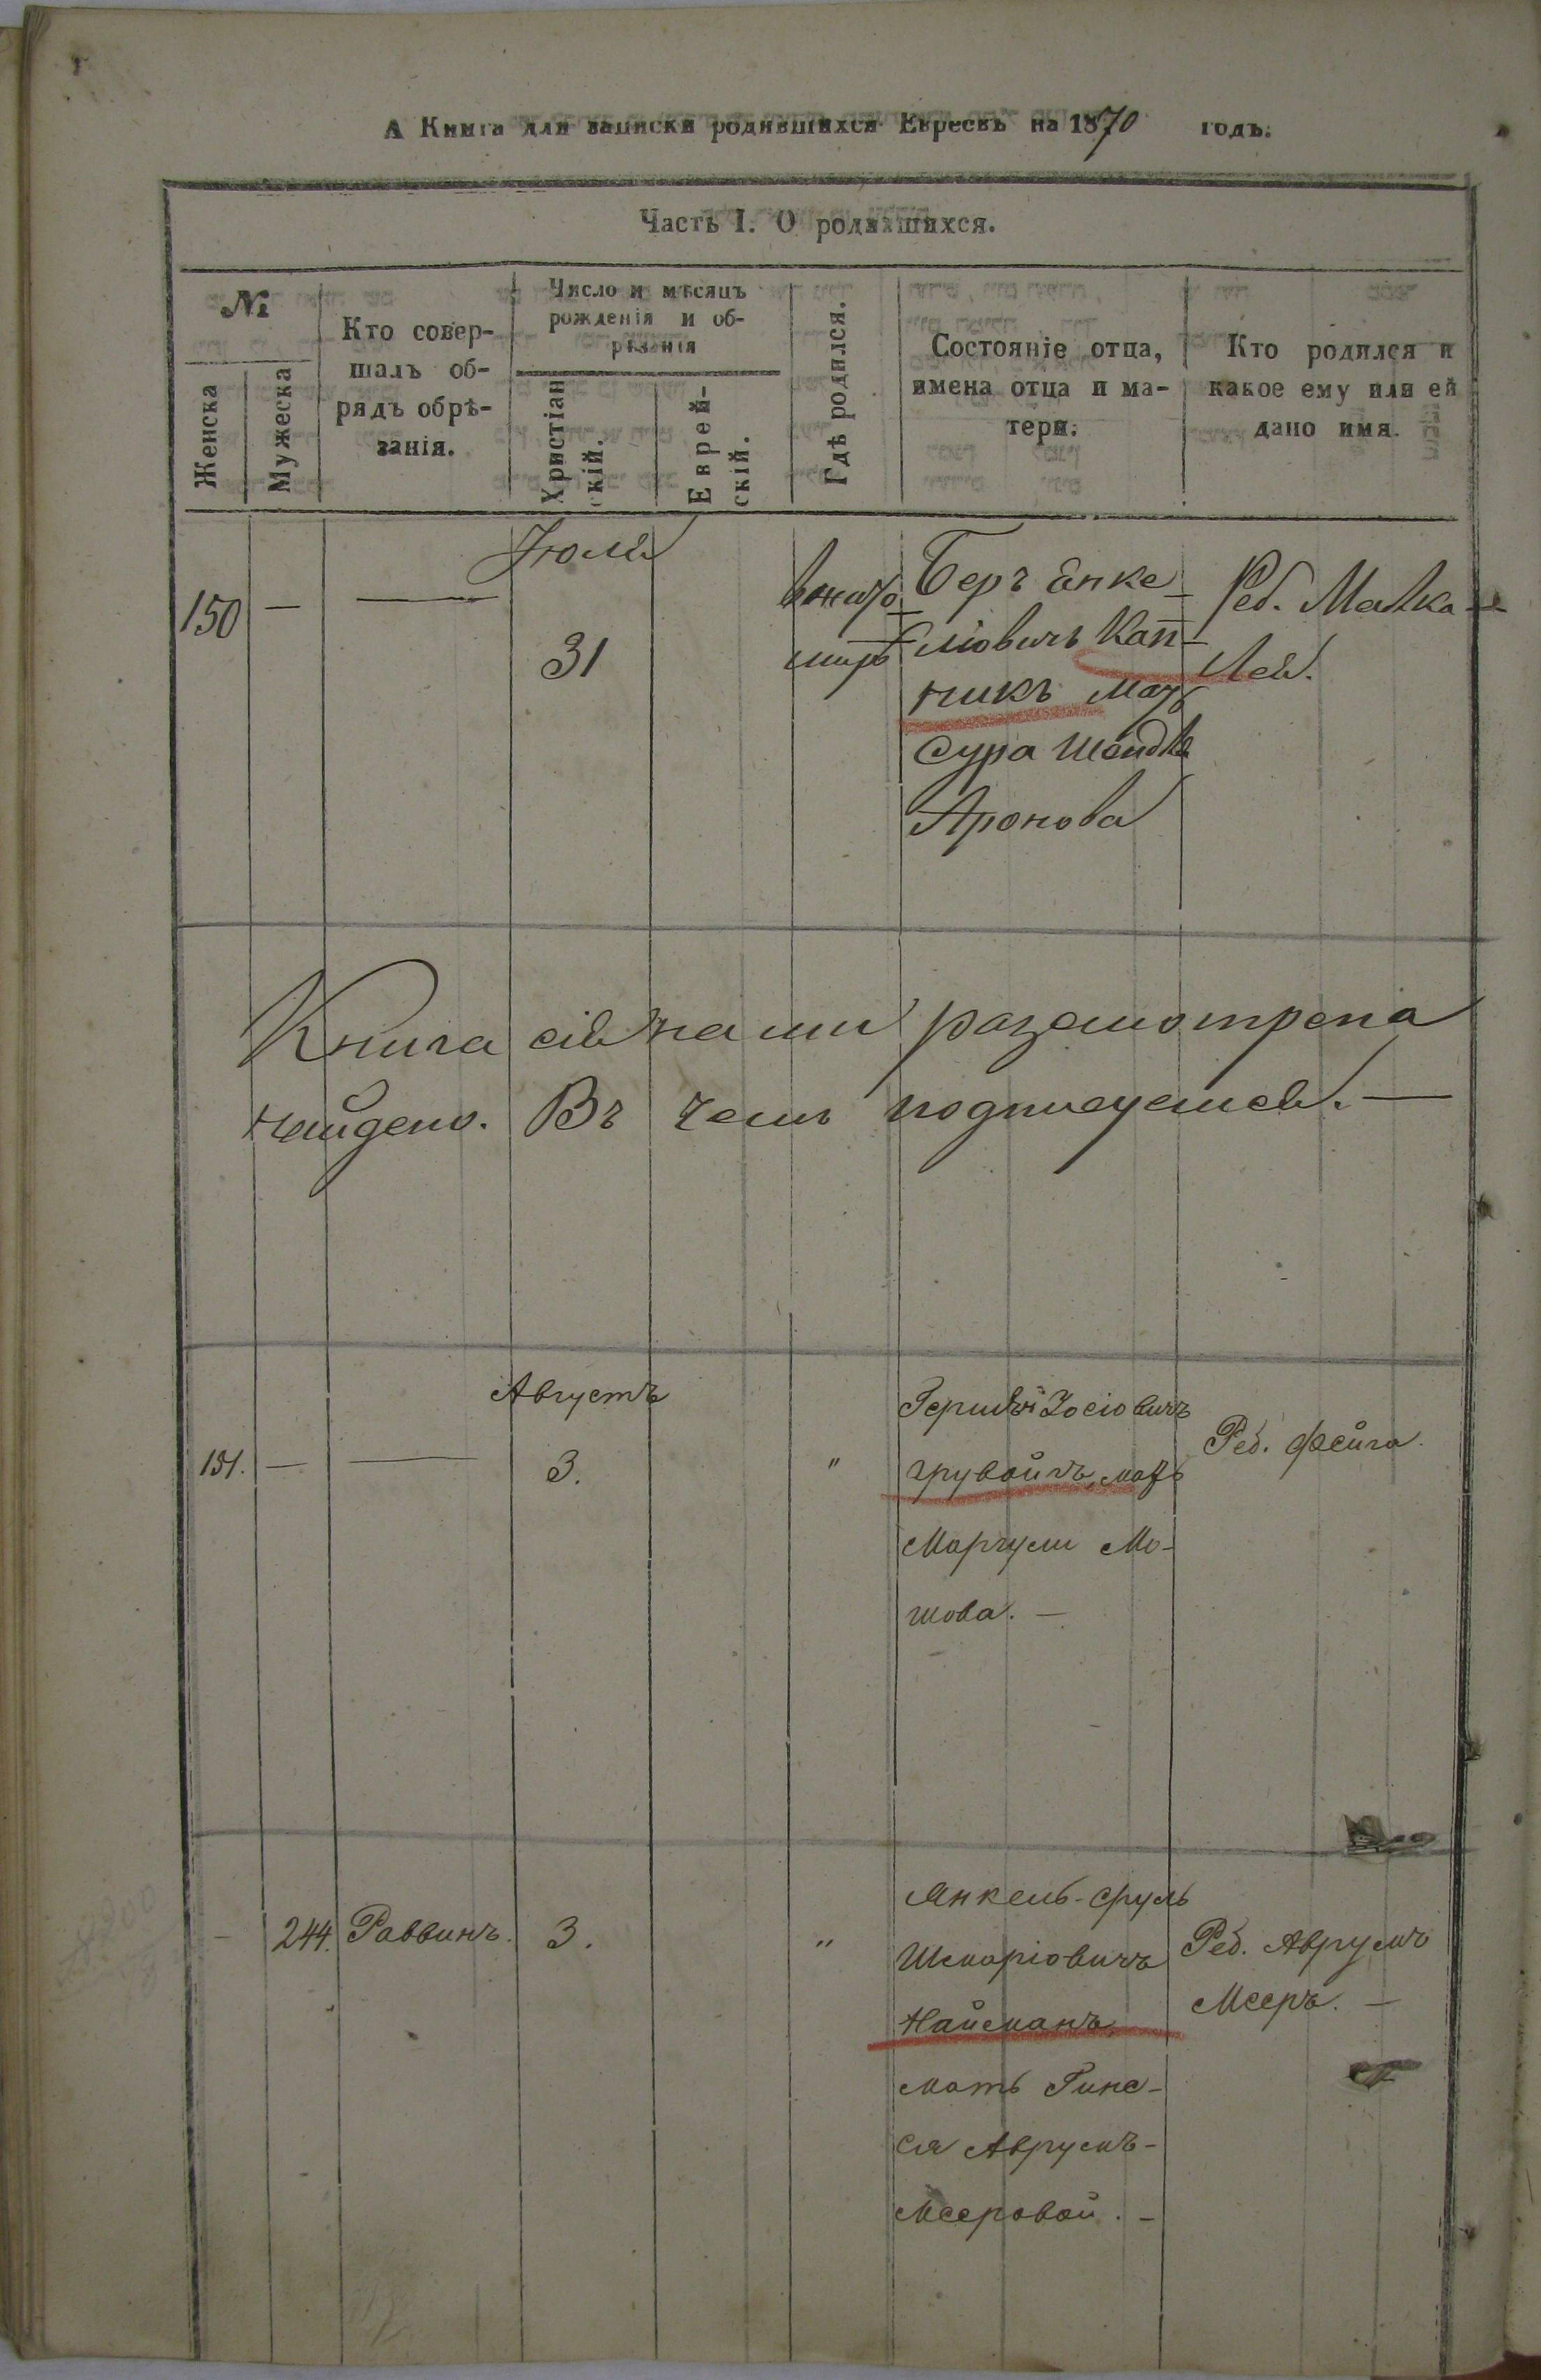 А Книга для записки родившихся Евреевъ на 1870 годъ.
Часть I. О родившихся.
№
Женска
Мужеска
Кто совер-
шалъ об-
рядъ обрѣ-
занія.
Число и мѣсяцъ
рожденія и об-
рѣзанія
Христіан
скій.
Еврей-
скій.
Гдѣ родился.
Состояніе отца,
имена отца и ма-
тери.
Кто родился и
какое ему или ей
дано имя.
Іюля
150 — — 31
Беръ Енке-
ліовичъ Кап-
никъ мать
Сура Шендля
Аронова
Реб. Малка-
Лея.
Книга сія нами разсмотрена
найдено. Въ чемъ подписуемся. —
Августъ
151. — — 3. "
Зосіовичъ
мать
Маргули Мо-
шова. —
Реб. Фейга.
- 244. Раввинъ. 3. "
Янкель-Сруль
Шмаріовичъ
Найманъ,
мать Гине-
ся Аврумъ-
Мееровой. -
Реб. Аврумъ
Мееръ. —